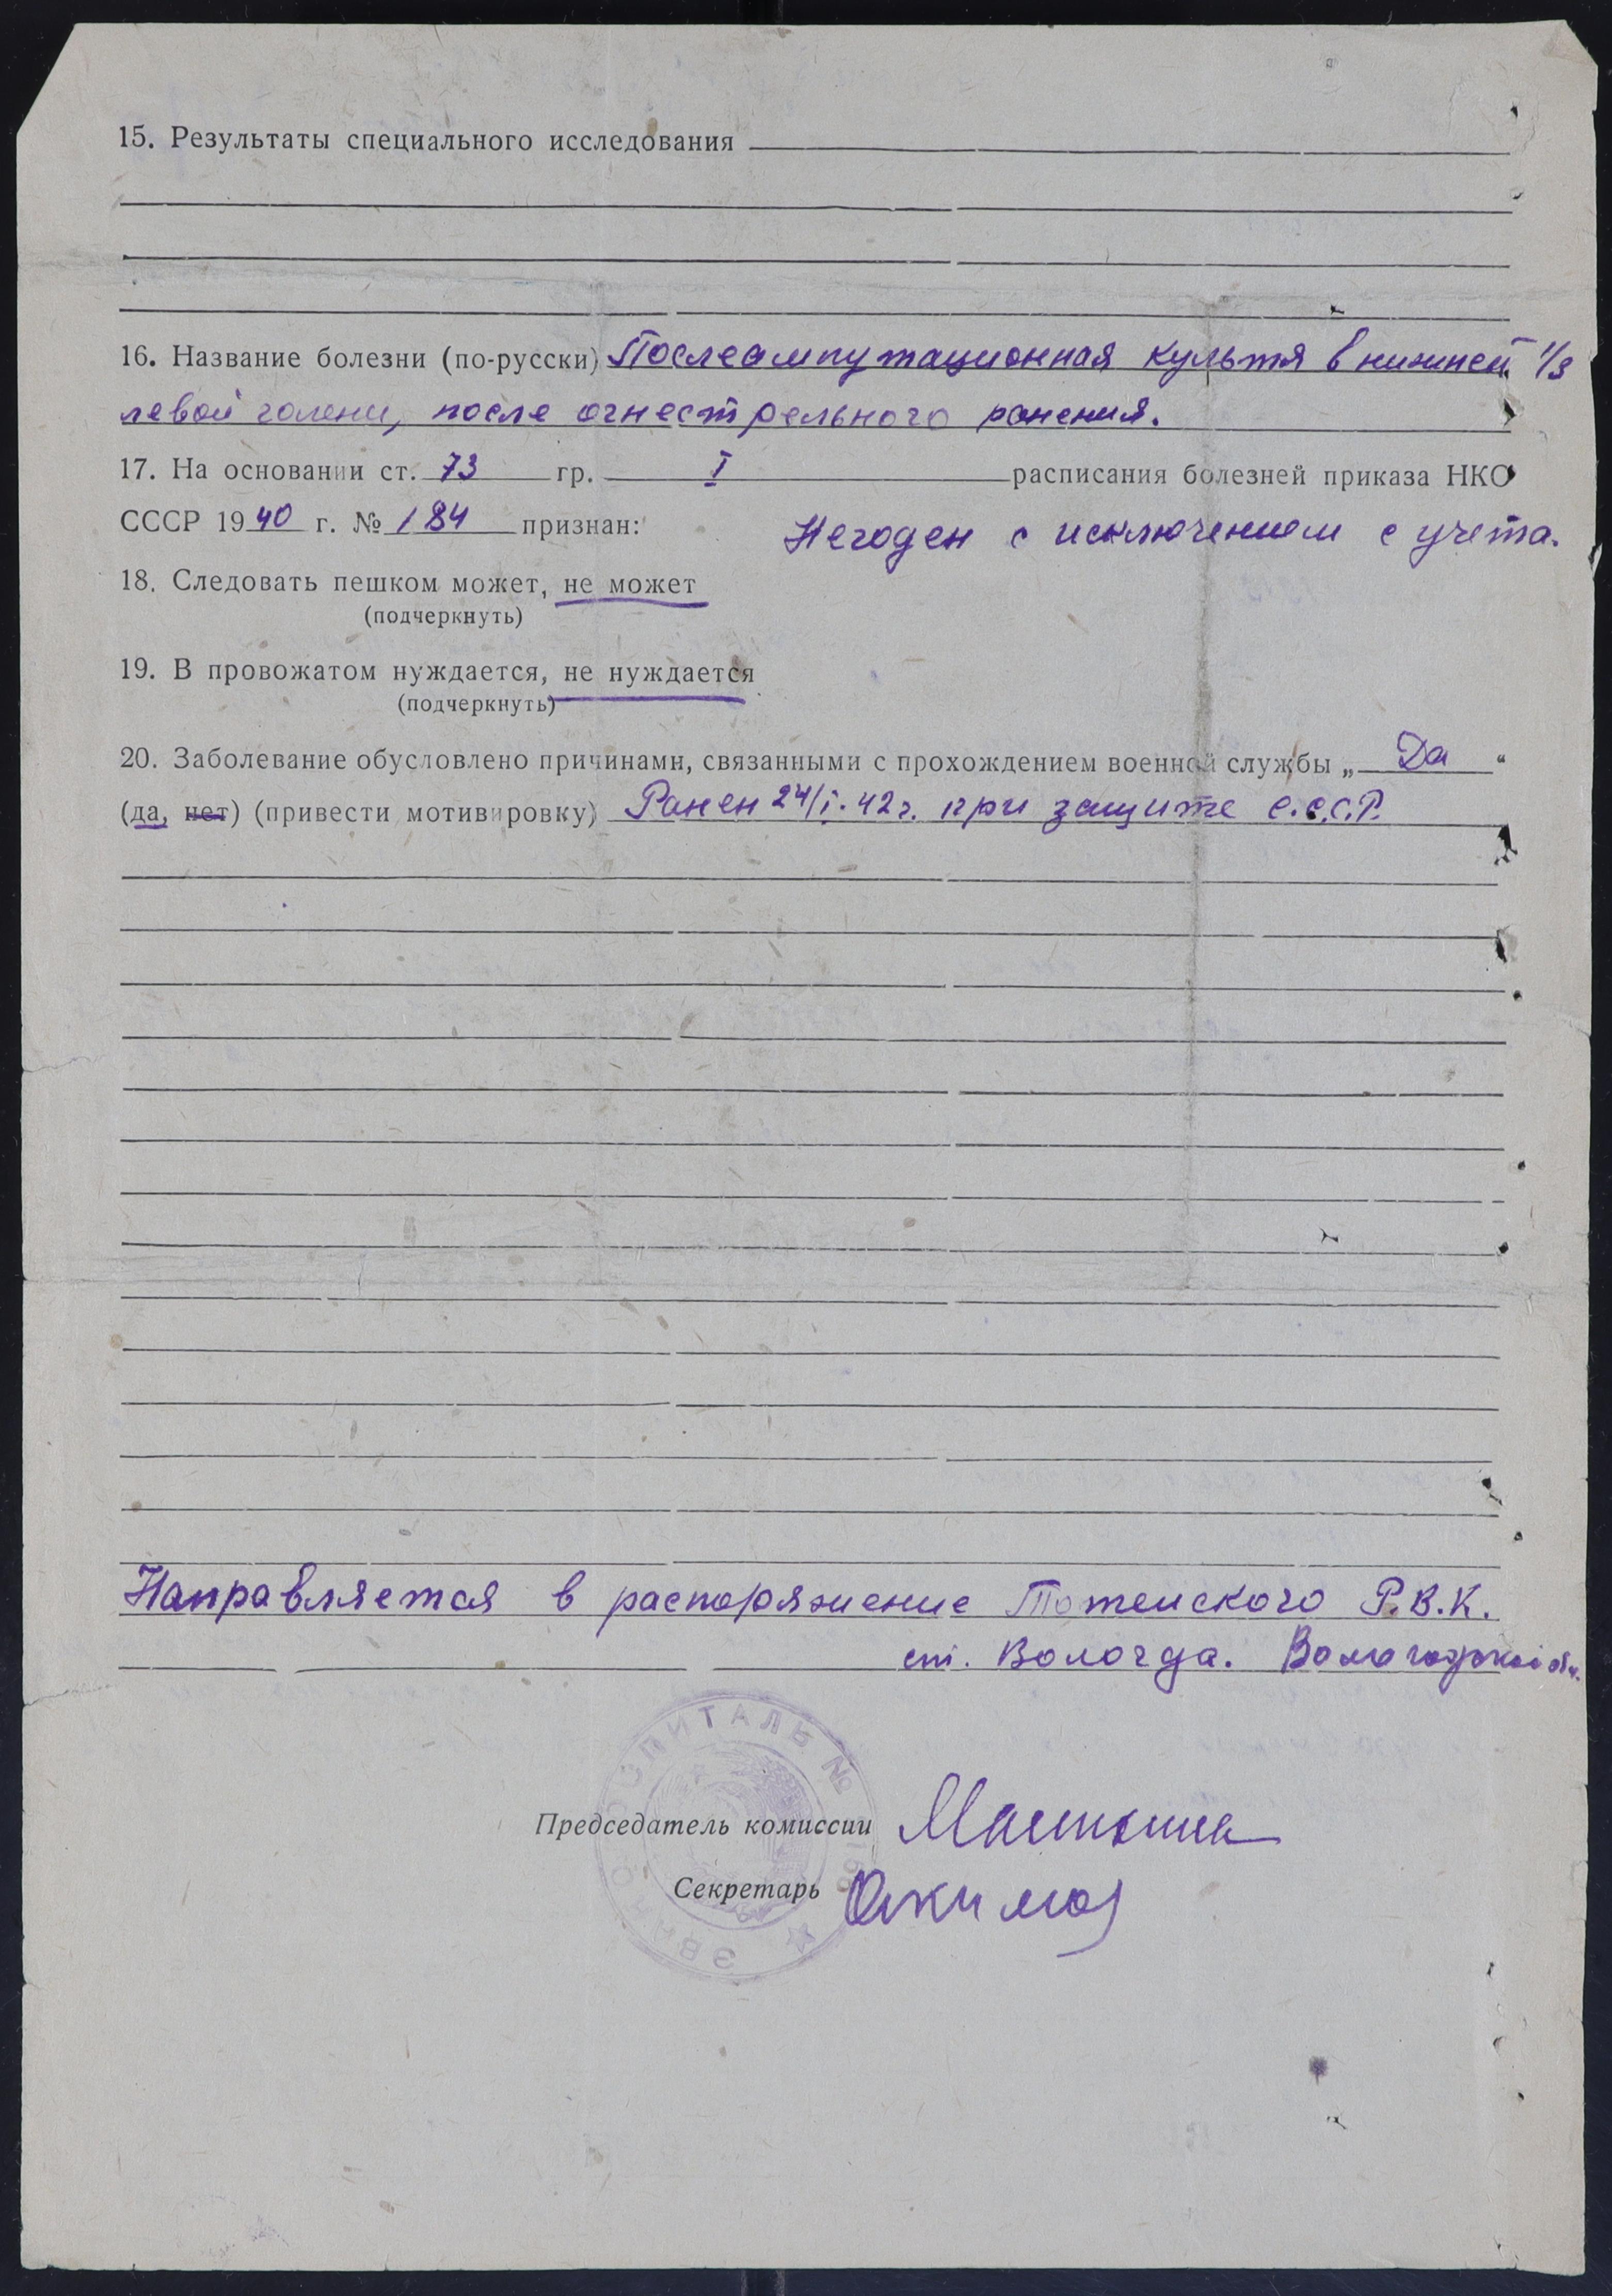 15. Результаты специального исследования
16. Название болезни (по-русски) Послеампутационная культя в нижней 1/3
левой голени, после огнестрельного ранения.
17. На основании ст. 73 гр. I расписания болезней приказа НКО
СССР 1940 г. № 184 признан: Негоден с исключением с учета.
18. Следовать пешком может, не может
(подчеркнуть)
19. В провожатом нуждается, не нуждается
(подчеркнуть)
20. Заболевание обусловлено причинами, связанными с прохождением военной службы „Да“
(да, нет) (привести мотивировку) Ранен 24/I.42г. при защите С.С.С.Р.
Направляется в распоряжение Тотемского Р.В.К.
ст. Вологда. Вологодской обл.
ГОСПИТАЛЬ №
Председатель комиссии
Секретарь